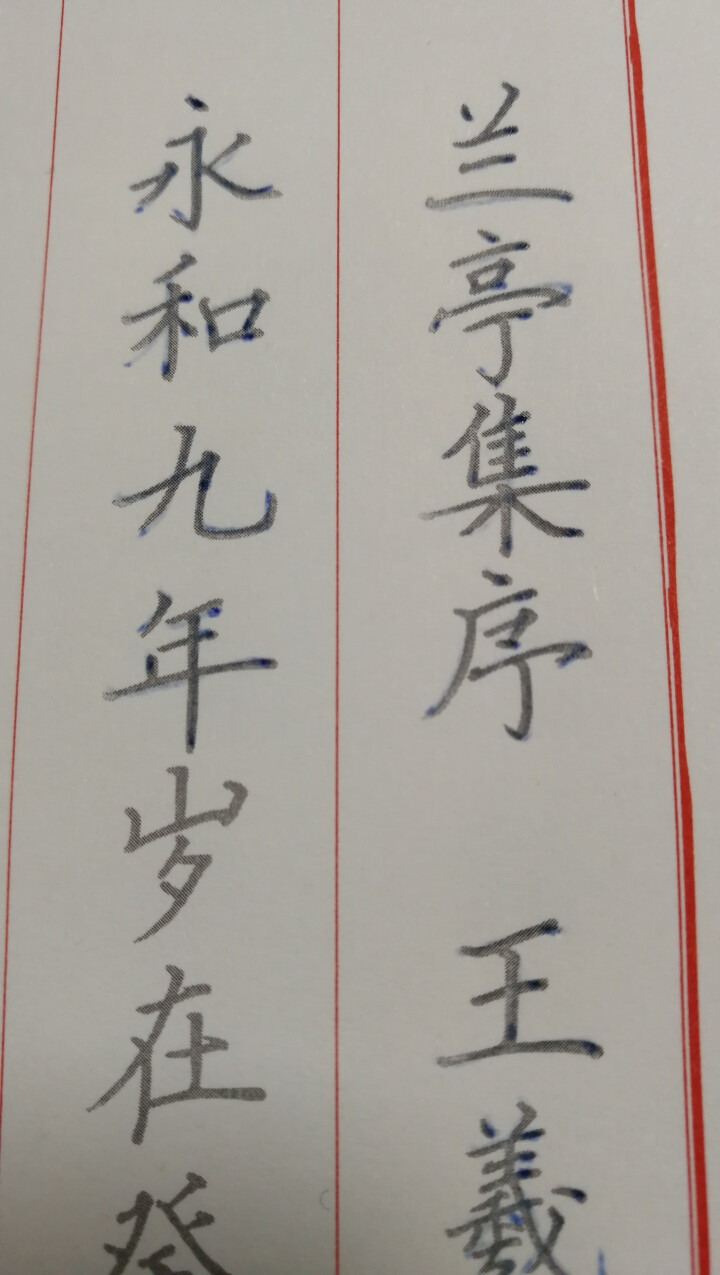 兰亭集序 王羲
永和九年岁在癸